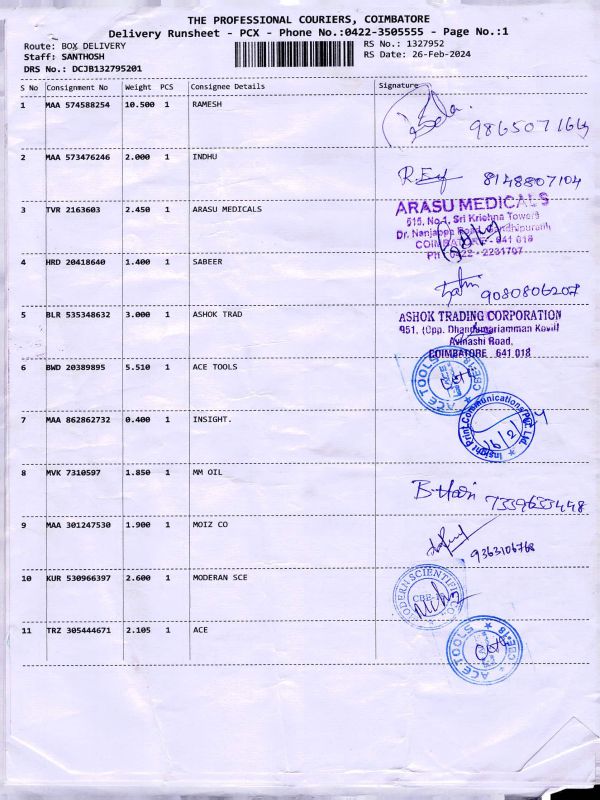 THE PROFESSIONAL COURIERS, COIMBATORE
Delivery Runsheet - PCX - Phone No.:0422-3505555 - Page No.:1
Route: BOX DELIVERY
RS No.: 1327952
Staff: SANTHOSH
RS Date: 26-Feb-2024
DRS No.: DCJB132795201
S No Consignment No Weight PCS Consignee Details Signature
1 MAA 574588254 10.500 1 RAMESH
2 MAA 573476246 2.000 1 INDHU
8148807104
3 TVR 2163603 2.450 1 ARASU MEDICALS
ARASU MEDICALS
515, No.1, Sri Krishna Towers
Dr. Nanjappa Road, Gandhipuram
COIMBATORE - 641 018
PH : 0422 - 2231707
4 HRD 20418640 1.400 1 SABEER
9080806207
5 BLR 535348632 3.000 1 ASHOK TRAD
ASHOK TRADING CORPORATION
951, (Opp. Dhandumariamman Kovil)
Avinashi Road,
COIMBATORE 641 018
6 BWD 20389895 5.510 1 ACE TOOLS
ACE TOOLS CBE-18
7 MAA 862862732 0.400 1 INSIGHT.
Insight Print Communications Pvt. Ltd.
8 MVK 7310597 1.850 1 MM OIL
7339633448
9 MAA 301247530 1.900 1 MOIZ CO
9363106768
10 KUR 530966397 2.600 1 MODERAN SCE
MODERN SCIENTIFIC CO
11 TRZ 305444671 2.105 1 ACE
ACE TOOLS CBE-18